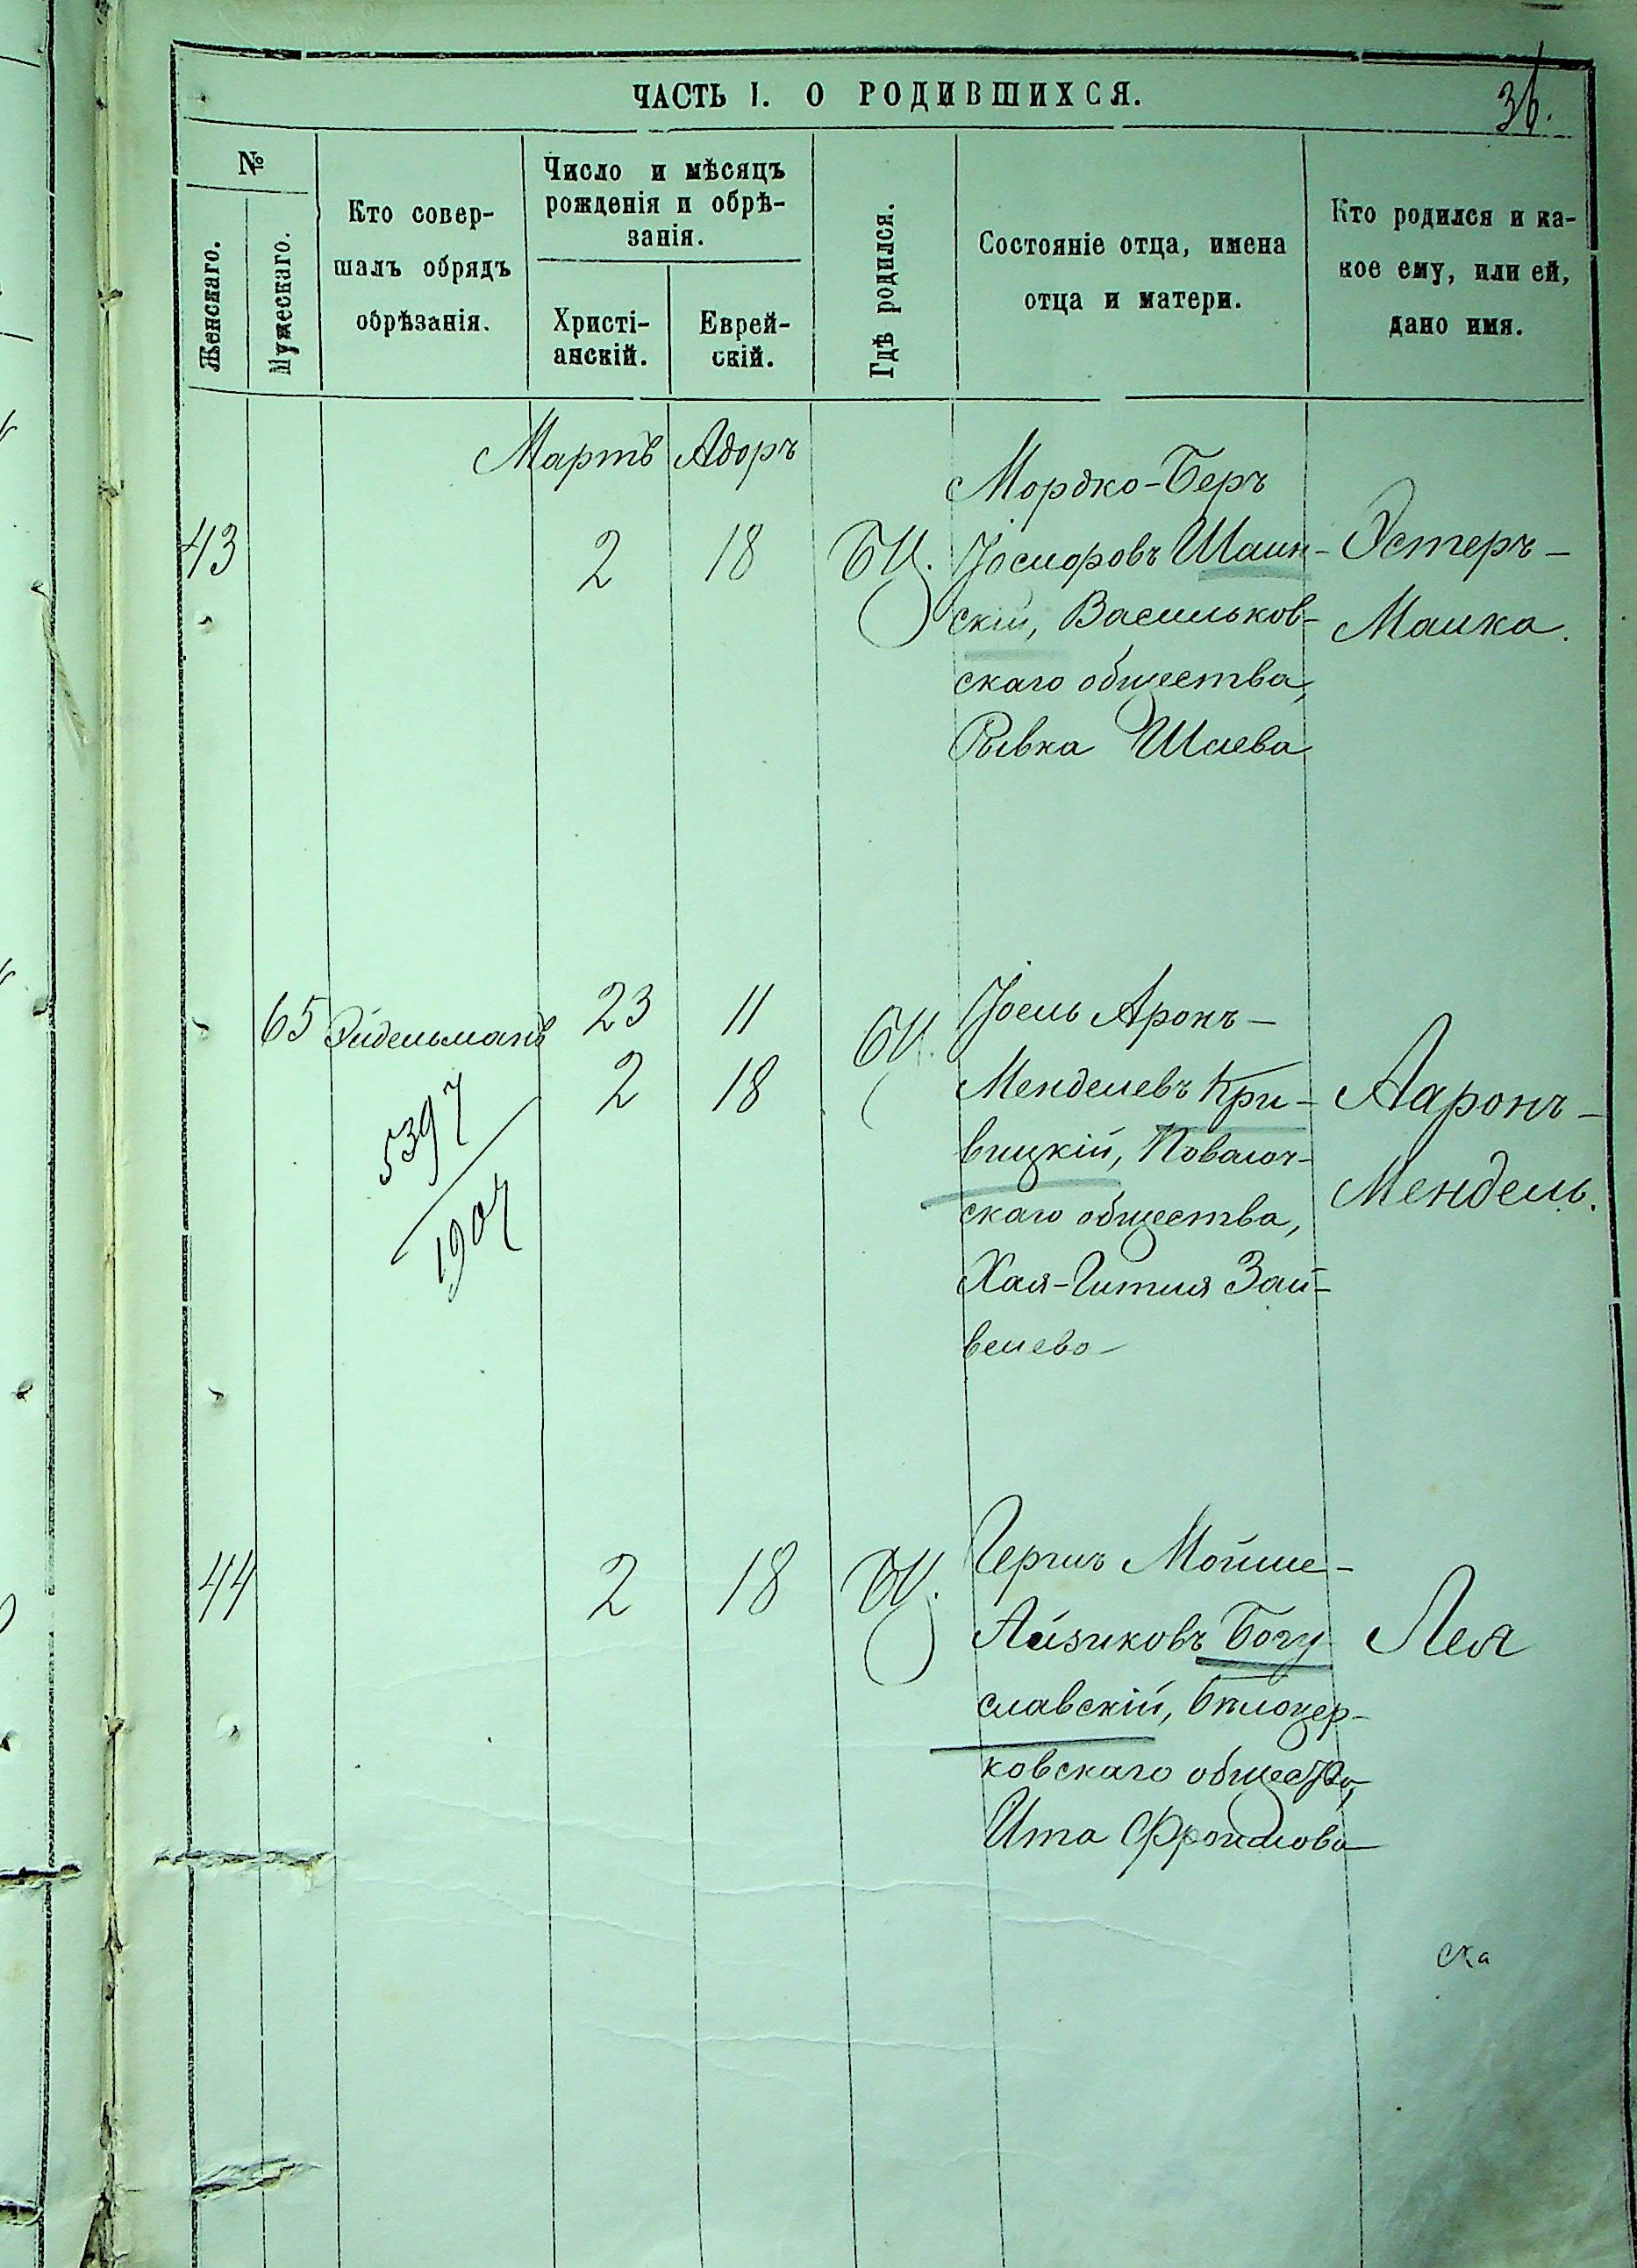 ЧАСТЬ I. О РОДИВШИХСЯ.
36.
№
Женскаго.
Мужескаго.
Кто совер-
шалъ обрядъ
обрѣзанія.
Число и мѣсяцъ
рожденія и обрѣ-
занія.
Христі-
анскій.
Еврей-
скій.
Гдѣ родился.
Состояніе отца, имена
отца и матери.
Кто родился и ка-
кое ему, или ей,
дано имя.
Мартъ Адоръ
43
2
18
БЦ.
Мордко-Беръ
Іосифовъ Шаин-
скій, Васильков-
скаго общества,
Рывка Шаева
Эстеръ-
Малка.
65
Эйдельманъ
5397
1907
23
2
11
18
БЦ.
Іоель Аронъ-
Менделевъ Кри-
вицкій, Поволоч-
скаго общества,
Хая-Гитля Зай-
велева
Ааронъ-
Мендель.
44
2
18
БЦ.
Гершъ Мойше-
Айзиковъ Богу
славскій, Бѣлоцер-
ковскаго общества,
Ита Фроимова
Лея
ска